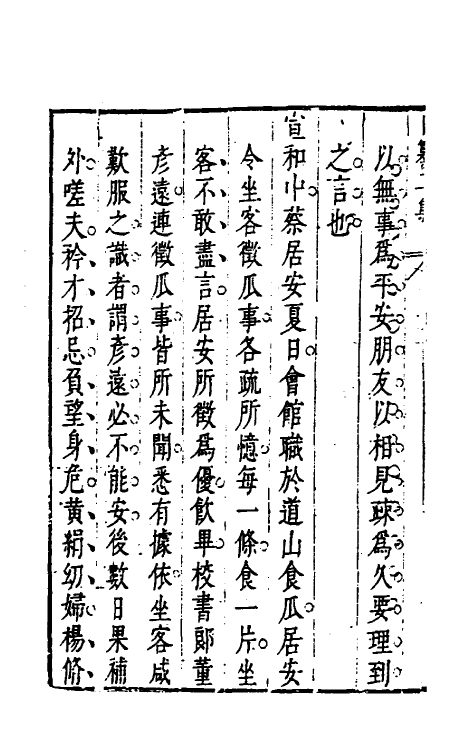 以無事爲平安朋友以相見疎爲久要理到
之言也
宣和中蔡居安夏日會館職於道山食瓜居安
令坐客徵瓜事各疏所憶每一條食一片坐
客不敢盡言居安所徵爲優飲畢校書郎董
彦遠連徵瓜事皆所未聞悉有據依坐客咸
歎服之識者謂彦遠必不能安後數日果補
外嗟夫矜才招忌負望身危黄絹幼婦楊脩